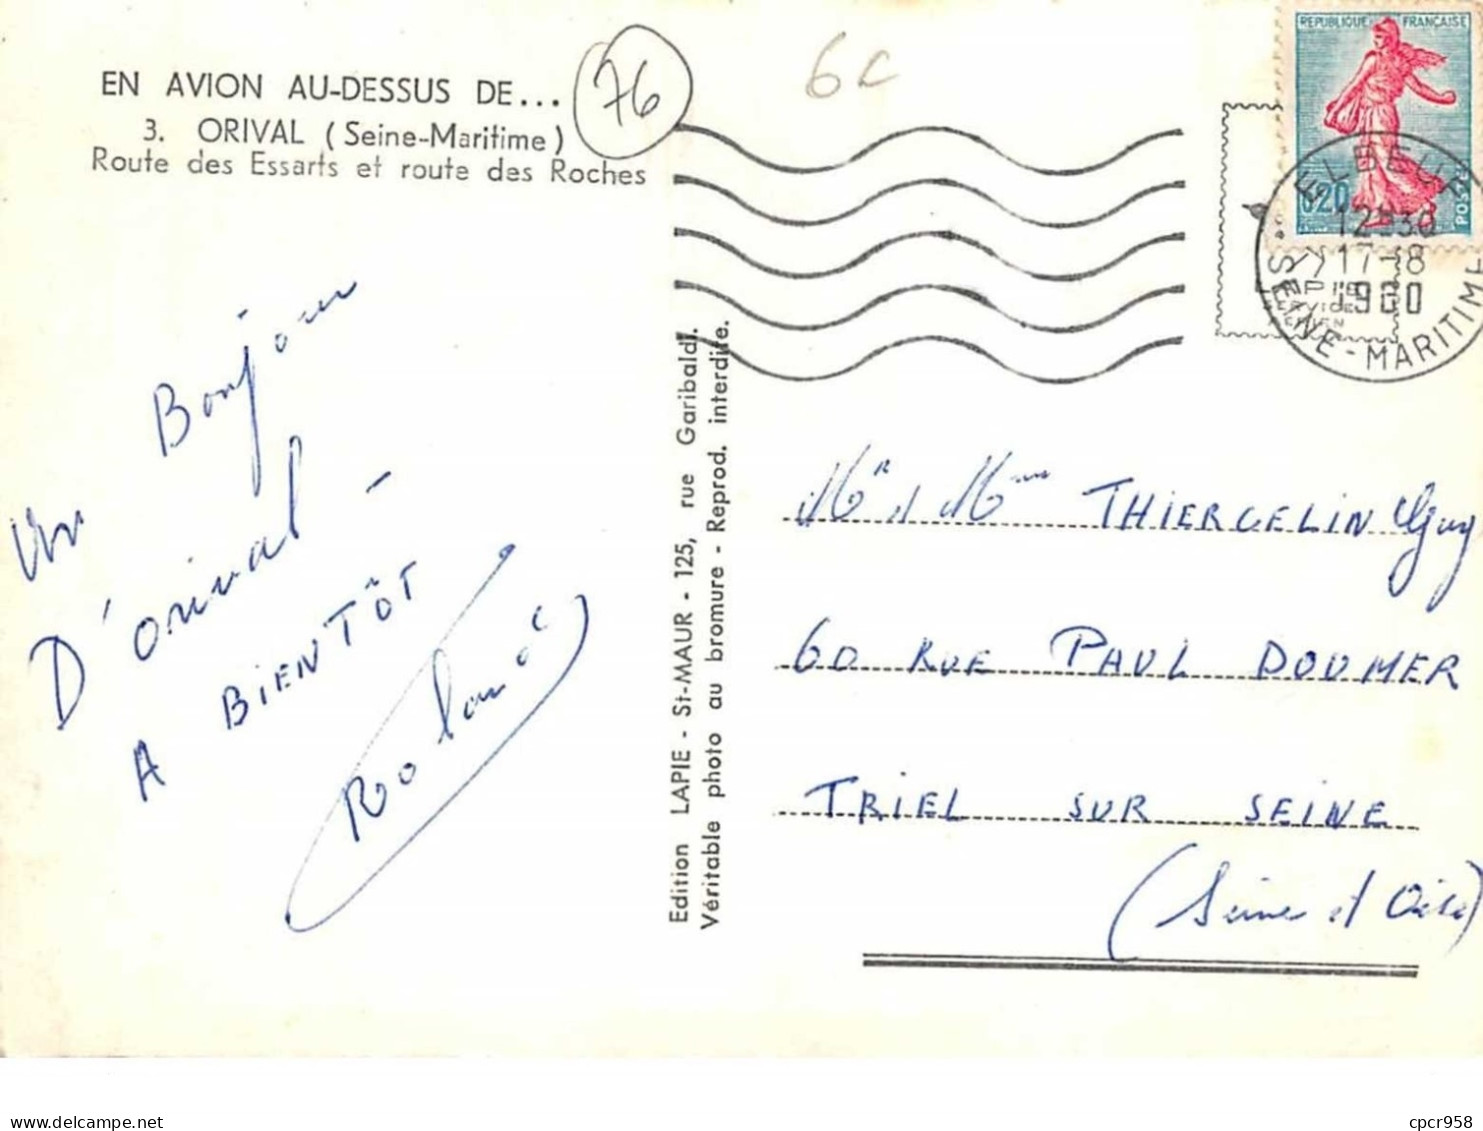 EN AVION AU-DESSUS DE...
3. ORIVAL (Seine-Maritime)
Route des Essarts et route des Roches
76
6c
REPUBLIQUE FRANÇAISE
0,20
POSTES
ELBEUF
12H30
17-8
1960
SEINE-MARITIME
Un Bonjour
D'orival -
A BIENTÔT
Roland
Edition LAPIE - St-MAUR - 125, rue Garibaldi.
Véritable photo au bromure - Reprod. interdite.
Mr et Mme THIERCELIN Guy
60 RUE PAUL DOUMER
TRIEL SUR SEINE
(Seine et Oise)
cpcr958